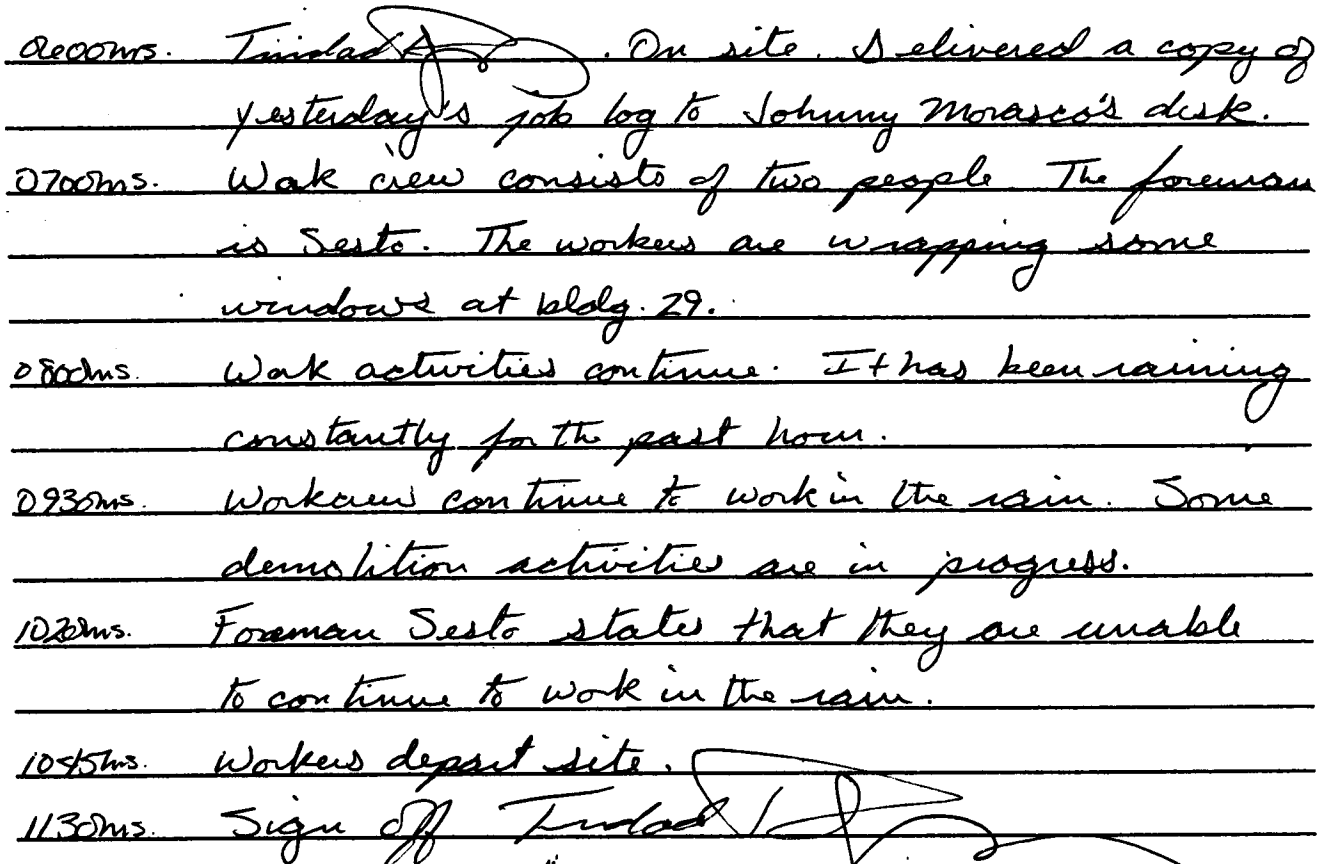 0600hrs. Trinidad . On site. Delivered a copy of
yesterday's job log to Johnny Morasco's desk.
0700hrs. Work crew consists of two people. The foreman
is Sesto. The workers are wrapping some
windows at bldg. 29.
0800hrs. Work activities continue. It has been raining
constantly for the past hour.
0930hrs. Workcrew continue to work in the rain. Some
demolition activities are in progress.
1020hrs. Foreman Sesto states that they are unable
to continue to work in the rain.
1045hrs. Workers depart site.
1130hrs. Sign off Trinidad